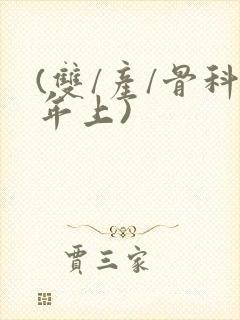 (雙/產/骨科
年上)
賈三家